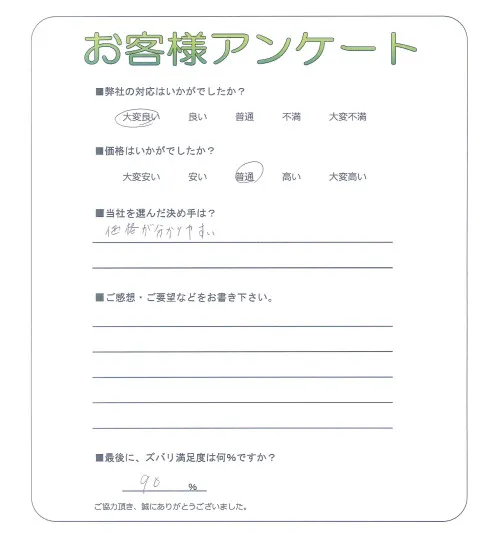 お客様アンケート
■弊社の対応はいかがでしたか？
大変良い 良い 普通 不満 大変不満
■価格はいかがでしたか？
大変安い 安い 普通 高い 大変高い
■当社を選んだ決め手は？
価格が分かりやすい
■ご感想・ご要望などをお書き下さい。
■最後に、ズバリ満足度は何%ですか？
90 %
ご協力頂き、誠にありがとうございました。